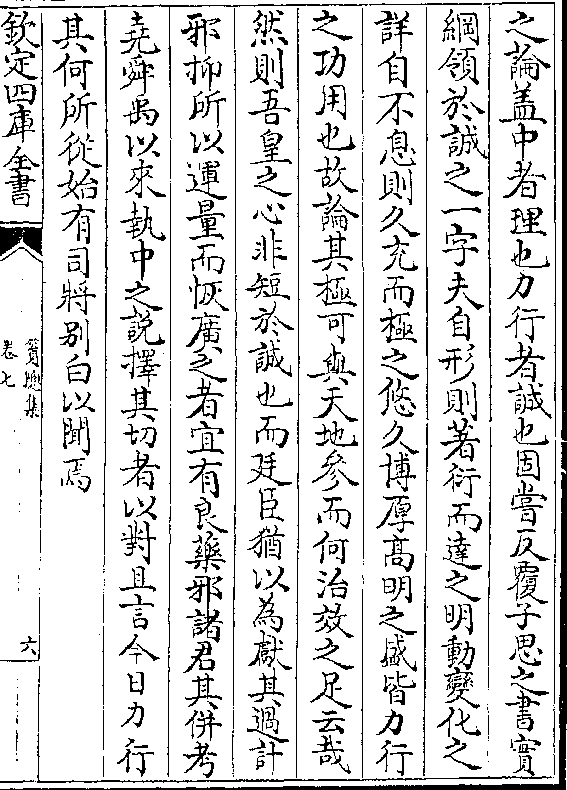 之論蓋中者理也力行者誠也固嘗反覆子思之書實
綱領於誠之一字夫自形則著衍而達之明動變化之
詳自不息則久充而極之悠久博厚高明之盛皆力行
之功用也故論其極可與天地參而何治效之足云哉
然則吾皇之心非短於誠也而廷臣猶以為獻其過計
邪抑所以運量而恢廣之者宜有良藥邪諸君其併考
堯舜禹以來執中之說擇其切者以對且言今日力行
其何所從始有司將别白以聞焉
欽定四庫全書
簣牕集
卷七
六